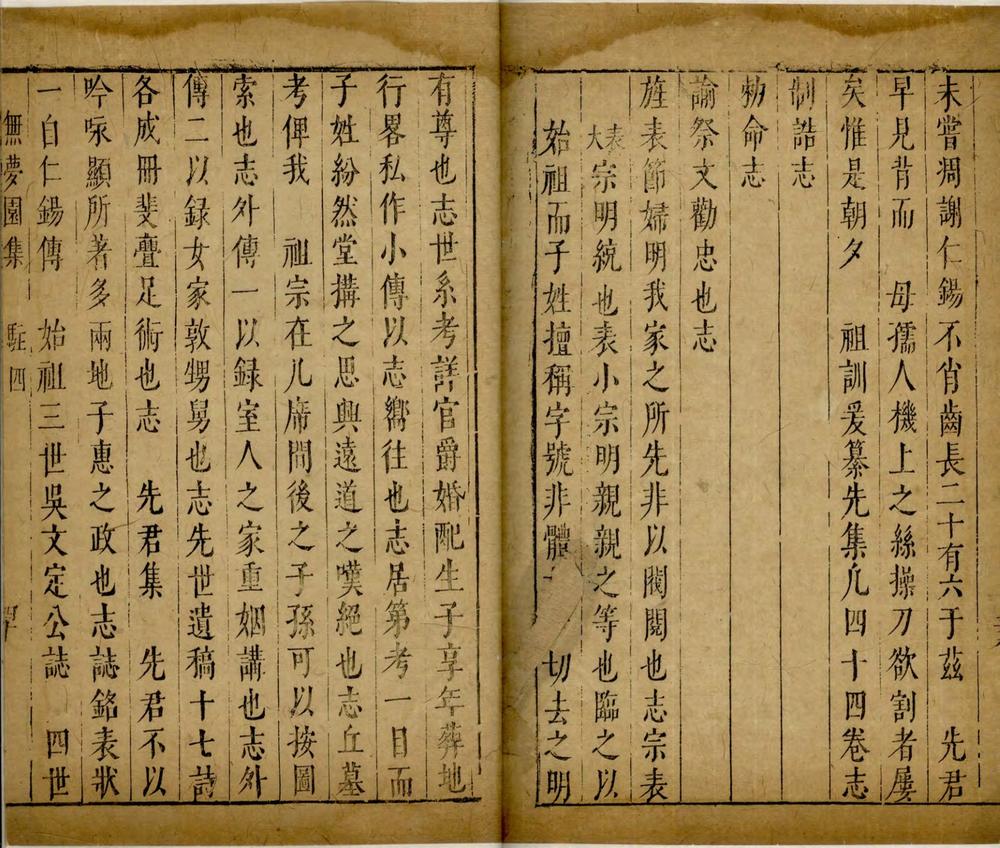 未嘗凋謝仁錫不肖齒長二十有六于茲　先君
早見背而　母孺人機上之絲操刀欲割者屢
矣惟是朝夕　祖訓爰纂先集凡四十四卷志
制誥志
勑命志
諭祭文勸忠也志
旌表節婦明我家之所先非以閥閱也志宗表
大表宗明統也表小宗明親親之等也臨之以
始祖而子姓擅稱字號非體　切去之明
有尊也志世系考詳官爵婚配生子享年葬地
行畧私作小傳以志嚮往也志居第考一目而
子姓紛然堂搆之思興遠道之嘆絕也志丘墓
考俾我　祖宗在几席間後之子孫可以按圖
索也志外傳一以録室人之家重姻講也志外
傳二以録女家敦甥舅也志先世遺稿十七詩
各成冊斐亹足術也志　先君集　先君不以
吟咏顯所著多兩地子惠之政也志誌銘表狀
一白仁錫傳　始祖三世吳文定公誌　四世
無夢園集　駐四